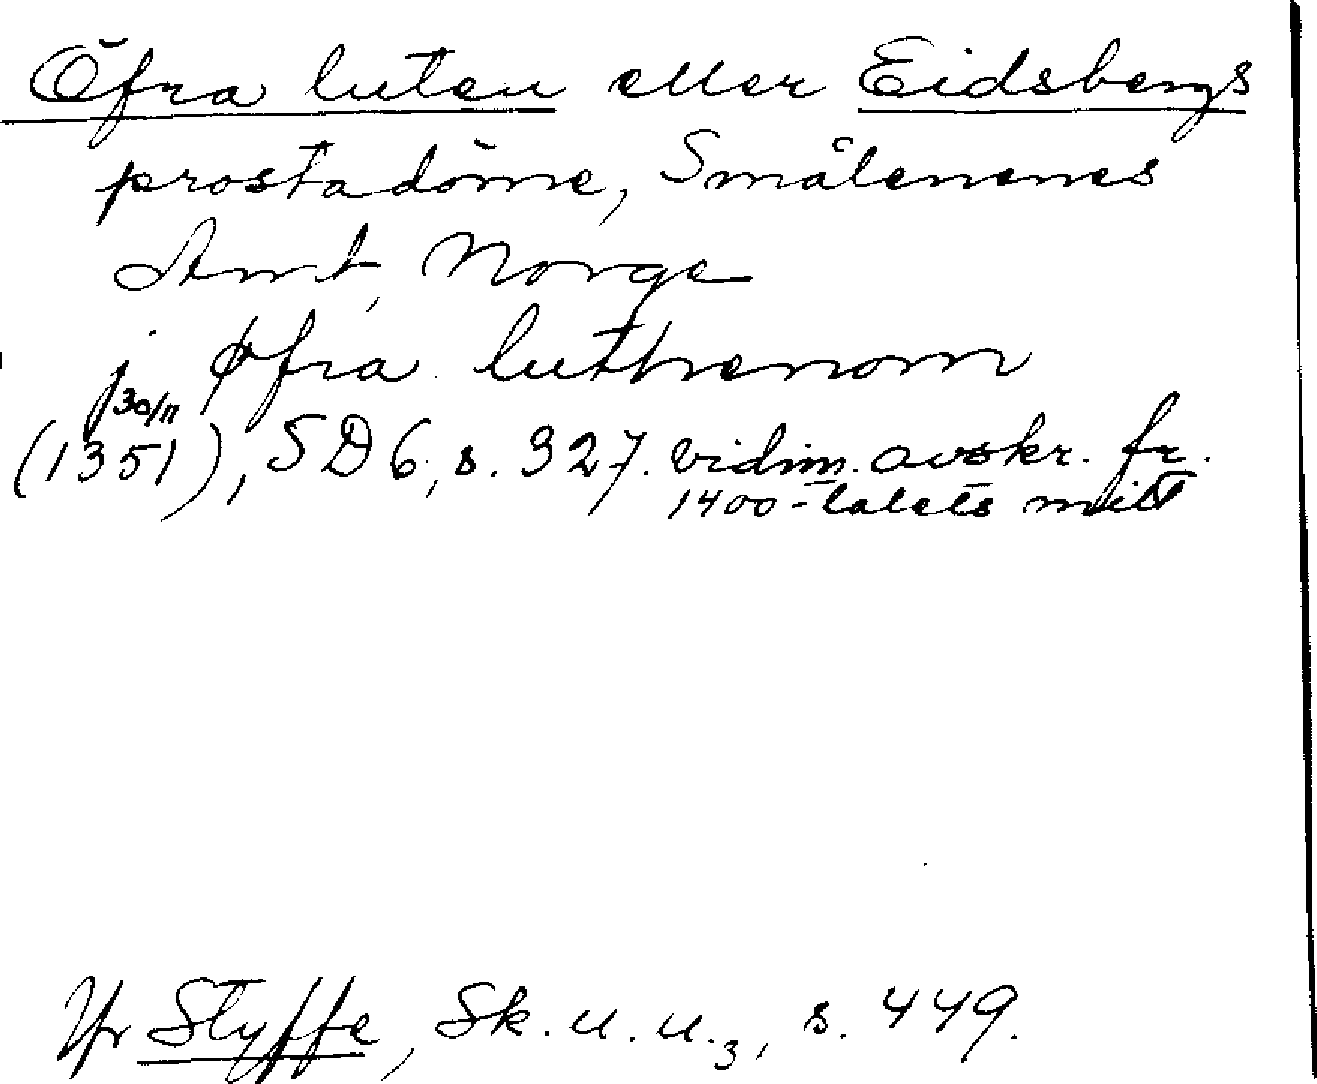 Öfra luten eller Eidsbergs
prostadöme, Smålenenes
Amt, Norge
j øfra luthrenom
30/11
(1351), SD 6, s. 327. vidim. avskr. fr.
1400-talets mitt
Jfr Styffe, Sk. u. u.3, s. 449.